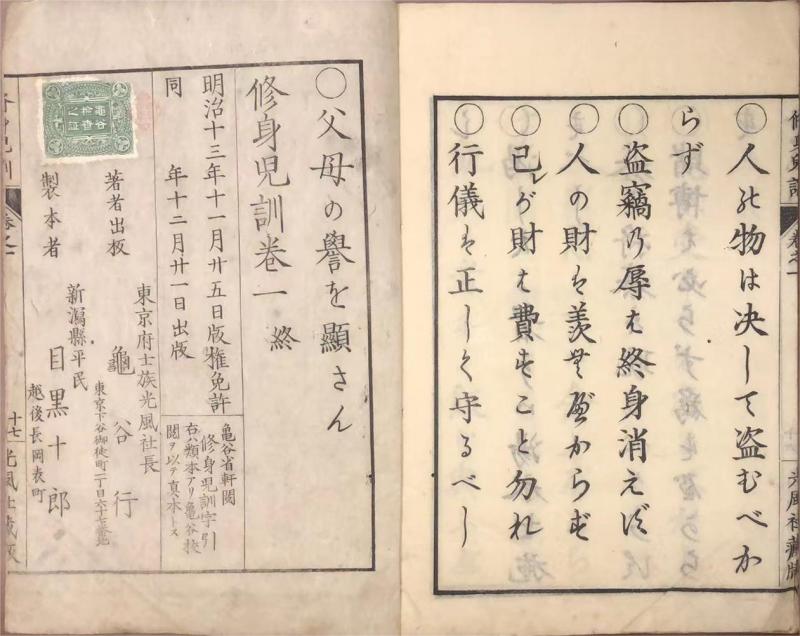 修身兒訓 卷之一 光風社藏版
○人の物は决して盗むべか
らず
○盗竊の辱は終身消えず
○人の財は羨むべからず
○己が財は費すこと勿れ
○行儀は正しく守るべし
○父母の譽を顯さん
修身兒訓卷一 終
明治十三年十一月廿五日版權免許
同 年十二月廿一日出版
亀谷省軒閲
修身児訓字引
右ハ類本アリ亀谷検
閲ヲ以テ真本トス
東京府士族光風社長
著者出板 龜谷行
東京下谷御徒町二丁目六十七番地
新潟縣平民
製本者 目黒十郎
越後長岡表町
卷之一 十七 光風社藏版